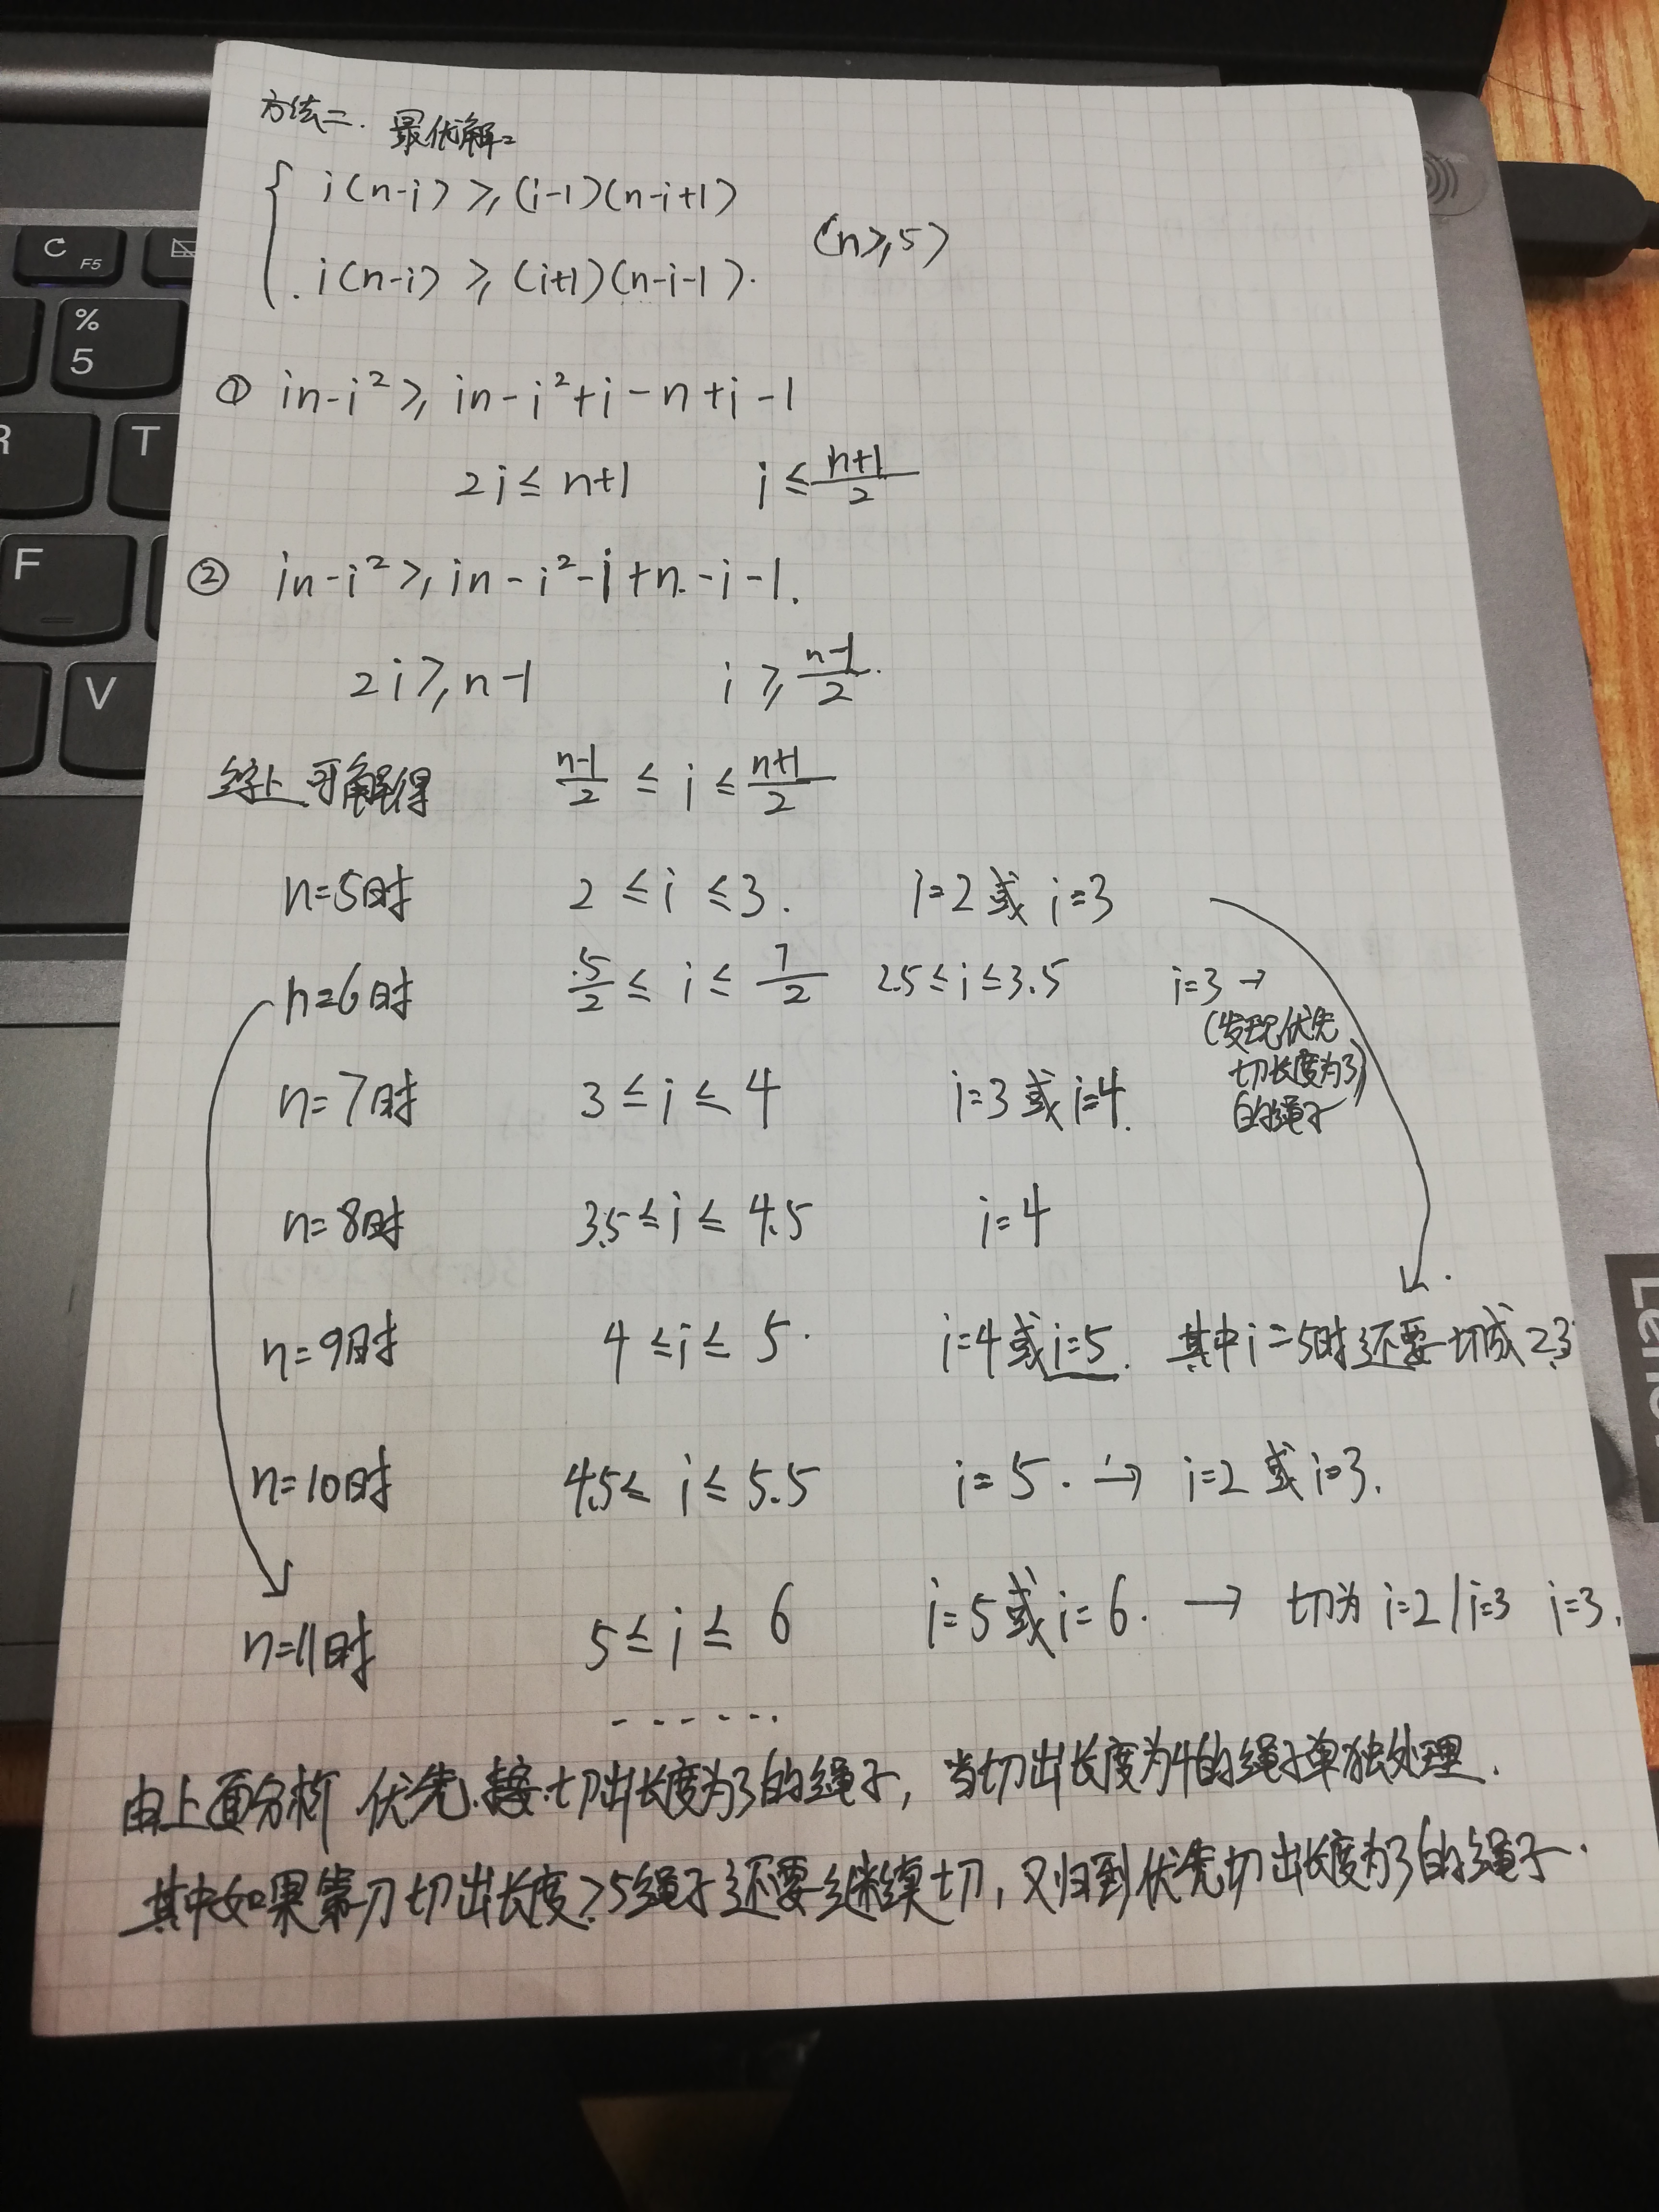 方法二. 最优解:
i(n-i) ≥ (i-1)(n-i+1)
(n≥5)
i(n-i) ≥ (i+1)(n-i-1).
① in-i² ≥ in-i²+i-n+i-1
2i ≤ n+1 i ≤ (n+1)/2
② in-i² ≥ in-i²-i+n-i-1.
2i ≥ n-1 i ≥ (n-1)/2.
综上可解得 (n-1)/2 ≤ i ≤ (n+1)/2
n=5时 2 ≤ i ≤ 3. i=2 或 i=3
n=6时 5/2 ≤ i ≤ 7/2 2.5 ≤ i ≤ 3.5 i=3 →
(发现优先
切长度为3
的绳子)
n=7时 3 ≤ i ≤ 4 i=3 或 i=4.
n=8时 3.5 ≤ i ≤ 4.5 i=4
n=9时 4 ≤ i ≤ 5. i=4 或 i=5. 其中i=5时还要切成2,3
n=10时 4.5 ≤ i ≤ 5.5 i=5. → i=2 或 i=3.
n=11时 5 ≤ i ≤ 6 i=5 或 i=6. → 切为 i=2/i=3 i=3.
------
由上面分析 优先 切出长度为3的绳子, 当切出长度为4的绳子单独处理.
其中如果第 刀切出长度≥5绳子还要继续切, 又归到优先切出长度为3的绳子.
C
F5
%
5
R
T
F
V